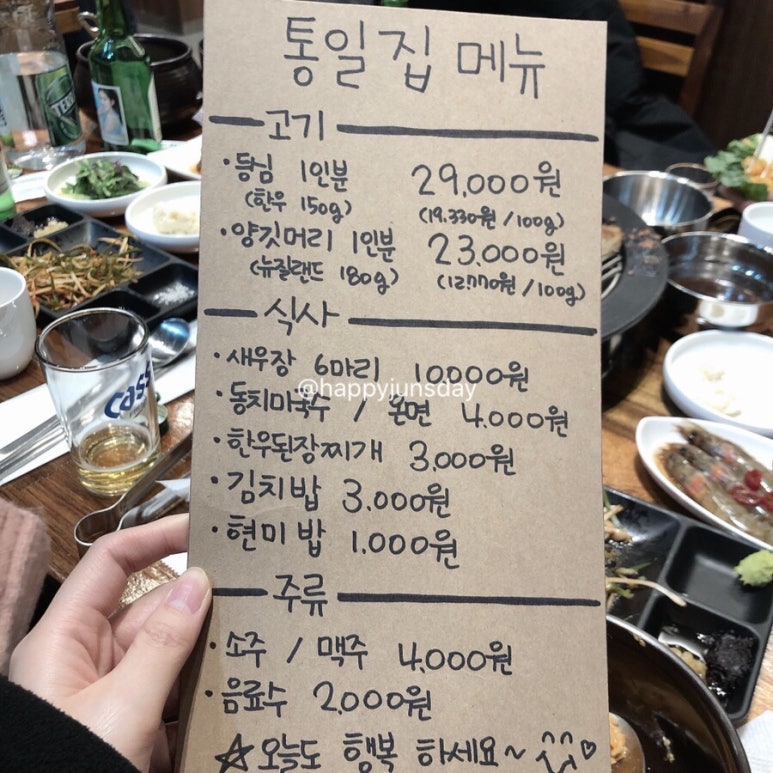 통일집 메뉴
고기
·등심 1인분 29,000원
(한우 150g) (19.330원/100g)
·양깃머리 1인분 23.000원
(뉴질랜드 180g) (12.770원/100g)
식사
·새우장 6마리 10,000원
@happyjunsday
·동치미국수 / 온면 4.000원
·한우된장찌개 3,000원
·김치밥 3.000원
·현미밥 1.000원
주류
·소주 / 맥주 4,000원
·음료수 2,000원
☆오늘도 행복 하세요~ ^^♡
Cass
TERRA